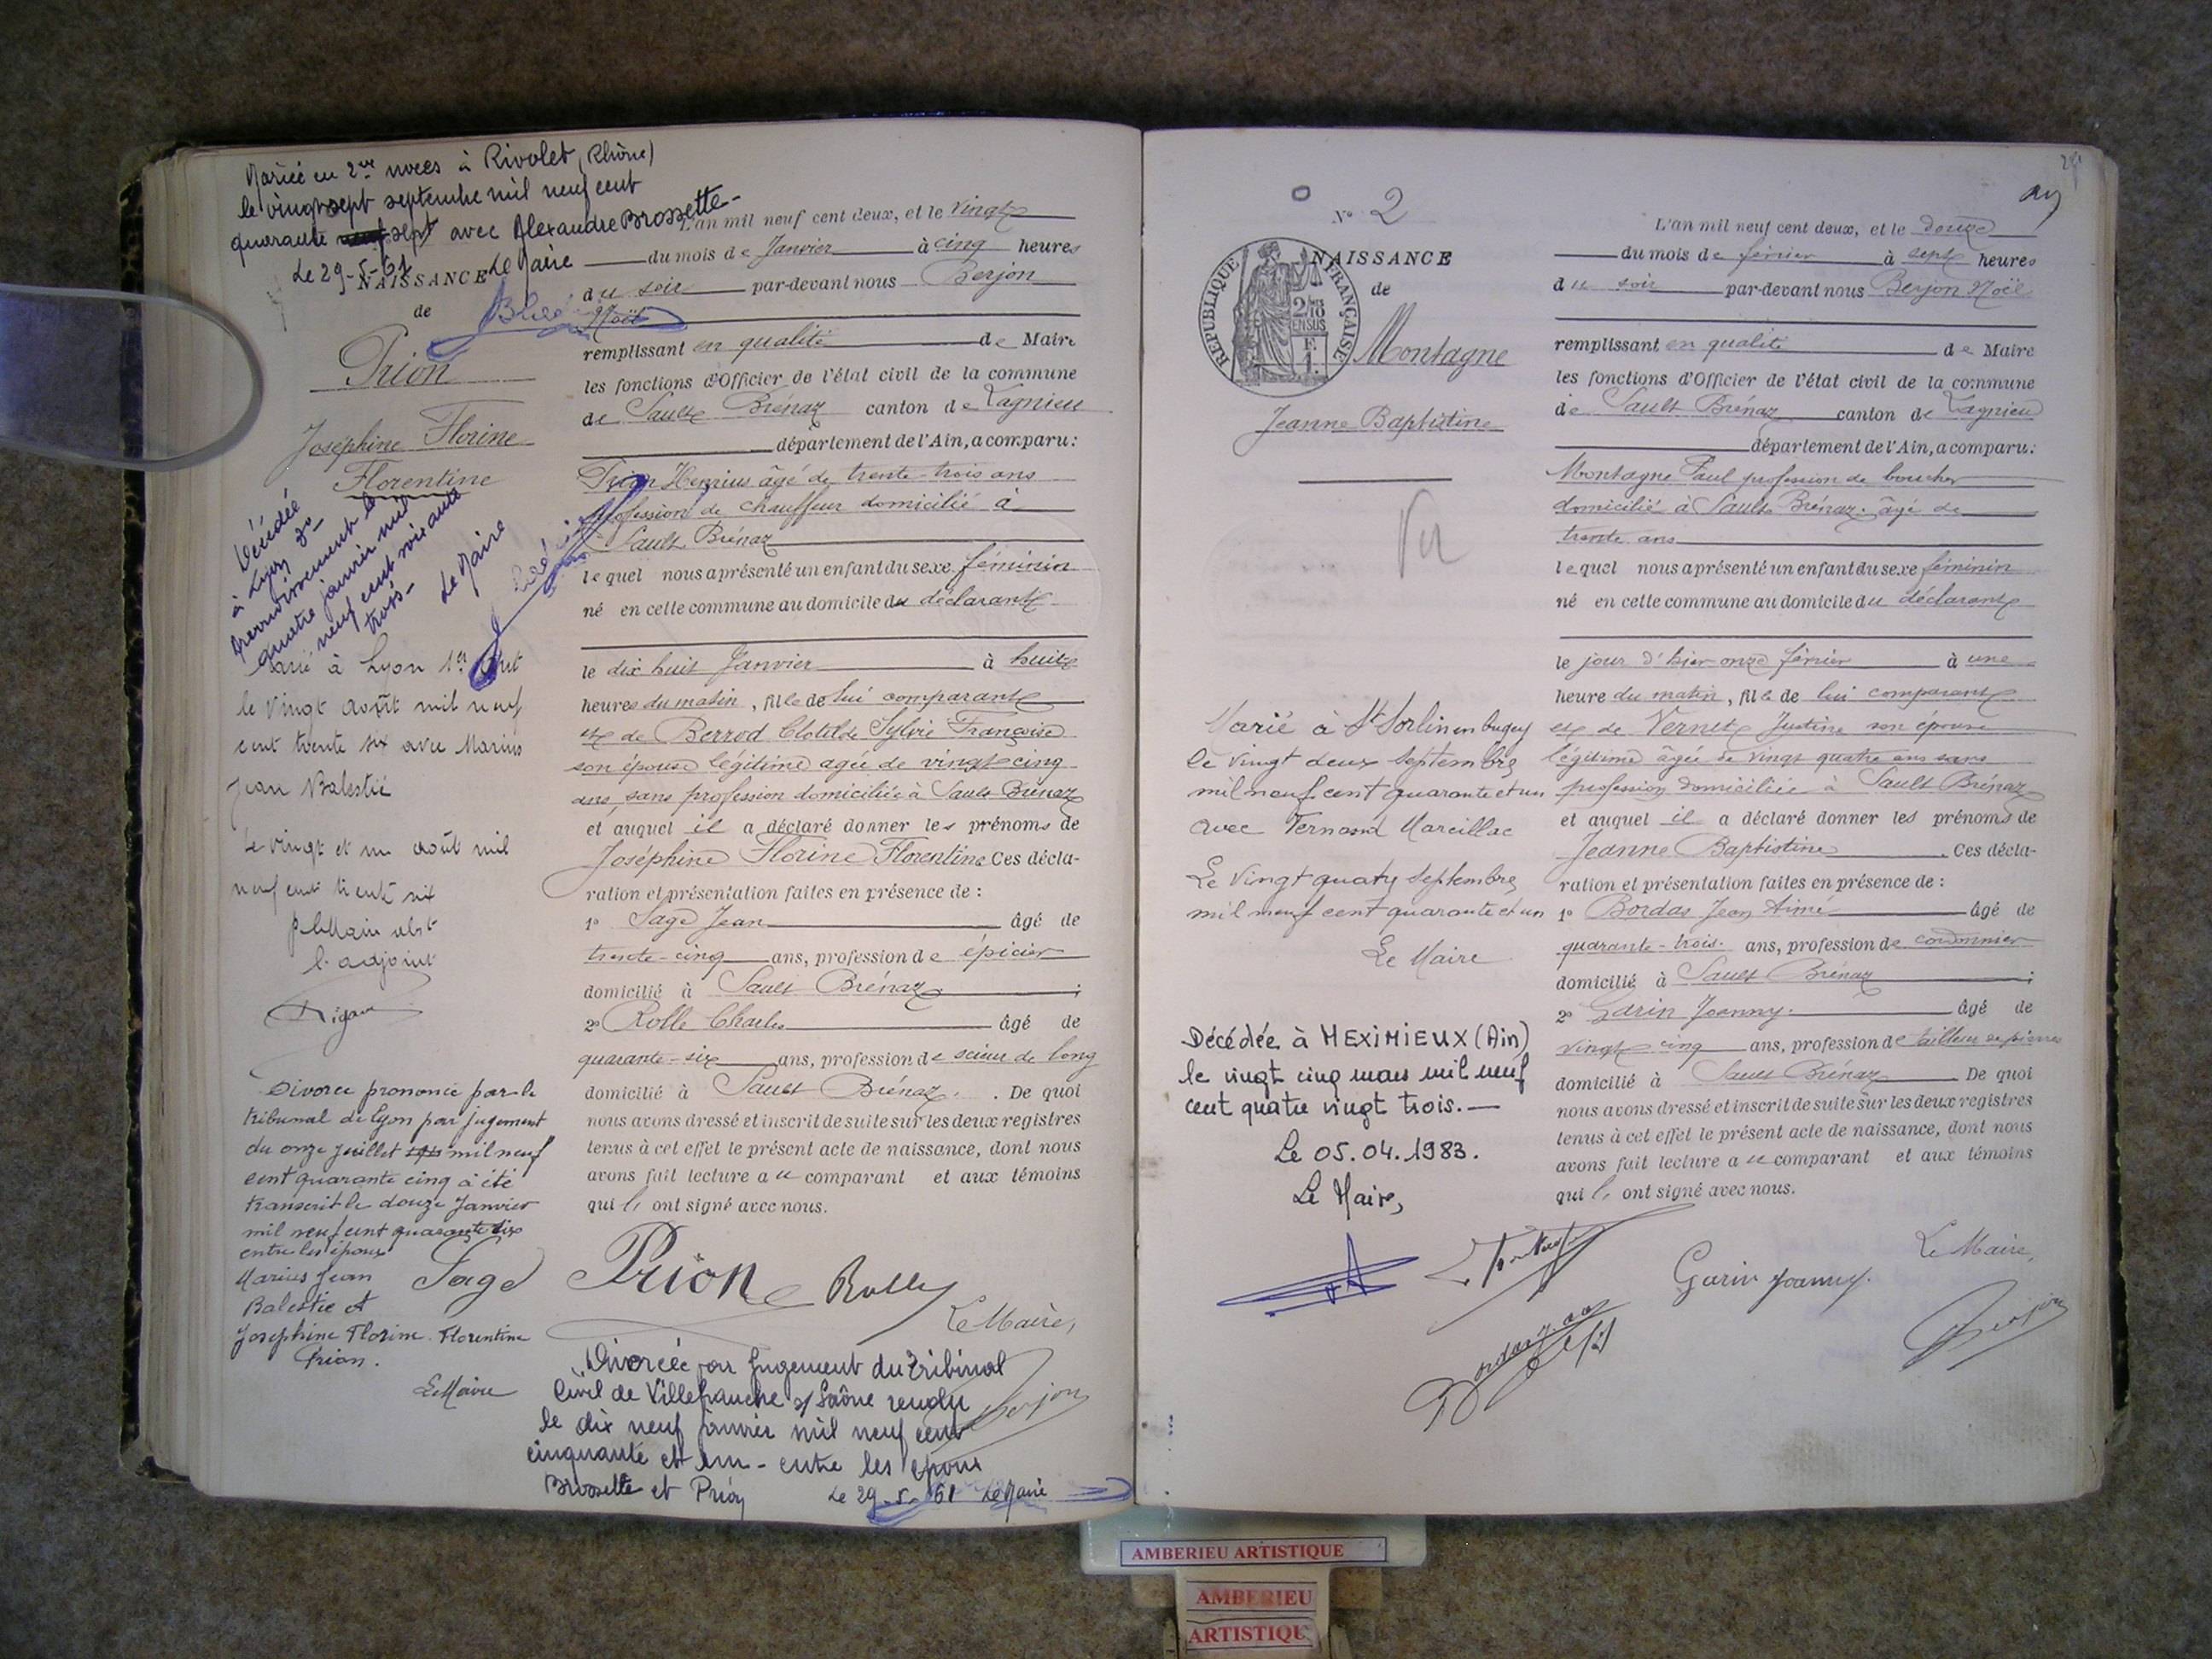 Mariée en 2me noces à Rivolet (Rhône)
le vingt sept septembre mil neuf cent
quarante sept avec Alexandre Brossette -
Le 29-5-61 Le Maire
NAISSANCE
de
Prion
Joséphine Florine
Florentine
Décédée
à Lyon 3e
arrondissement le
quatre janvier mil
neuf cent soixante
trois -
Le Maire
Marié à Lyon 1er
le vingt août mil neuf
cent trente six avec Marius
Jean Balestié
Le vingt et un août mil
neuf cent trente six
l'adjoint
Divorce prononcé par le
tribunal de Lyon par jugement
du onze juillet mil neuf
cent quarante cinq a été
transcrit le douze Janvier
mil neuf cent quarante six
entre les époux
Marius Jean
Balestié et
Joséphine Florine Florentine
Prion.
Le Maire
L'an mil neuf cent deux, et le vingt
du mois de Janvier à cinq heures
du soir par-devant nous Berjon
Noël
remplissant en qualité de Maire
les fonctions d'Officier de l'état civil de la commune
de Sault Brénaz canton de Lagnieu
département de l'Ain, a comparu:
Prion Henrius âgé de trente-trois ans
profession de chauffeur domicilié à
Sault Brénaz
lequel nous a présenté un enfant du sexe féminin
né en cette commune au domicile du déclarant
le dix huit Janvier à huit
heures du matin, fille de lui comparant
et de Berrod Clotilde Sylvie Françoise
son épouse légitime agée de vingt cinq
ans, sans profession domiciliée à Sault Brénaz
et auquel il a déclaré donner les prénoms de
Joséphine Florine Florentine Ces décla-
ration et présentation faites en présence de :
1º Sage Jean âgé de
trente-cinq ans, profession de épicier
domicilié à Sault Brénaz ;
2º Rolle Charles âgé de
quarante-six ans, profession de scieur de long
domicilié à Sault Brénaz. De quoi
nous avons dressé et inscrit de suite sur les deux registres
tenus à cet effet le présent acte de naissance, dont nous
avons fait lecture au comparant et aux témoins
qui ont signé avec nous.
Sage Prion Rolle
Le Maire,
Berjon
Divorcée par Jugement du Tribunal
Civil de Villefranche s/ Saône rendu
le dix neuf janvier mil neuf cent
cinquante et un - entre les époux
Brossette et Prion Le 29-5-61 Le Maire
Nº 2
NAISSANCE
de
REPUBLIQUE FRANÇAISE
2/10
EN SUS
Montagne
Jeanne Baptistine
Marié à St Sorlin en bugey
le vingt deux septembre
mil neuf cent quarante et un
avec Fernand Marcillac
Le vingt quatre septembre
mil neuf cent quarante et un
Le Maire
Décédée à MEXIMIEUX (Ain)
le vingt cinq mars mil neuf
cent quatre vingt trois.-
Le 05.04.1983.
Le Maire,
L'an mil neuf cent deux, et le douze
du mois de février à sept heures
du soir par-devant nous Berjon Noël
remplissant en qualité de Maire
les fonctions d'Officier de l'état civil de la commune
de Sault Brénaz canton de Lagnieu
département de l'Ain, a comparu:
Montagne Paul profession de boucher
domicilié à Sault Brénaz. âgé de
trente ans
lequel nous a présenté un enfant du sexe féminin
né en cette commune au domicile du déclarant
le jour d'hier onze février à une
heure du matin, fille de lui comparant
et de Vernet Justine son épouse
légitime âgée de vingt quatre ans sans
profession domiciliée à Sault Brénaz
et auquel il a déclaré donner les prénoms de
Jeanne Baptistine. Ces décla-
ration et présentation faites en présence de :
1º Bordas Jean Aimé âgé de
quarante-trois ans, profession de cordonnier
domicilié à Sault Brénaz ;
2º Garin Joanny. âgé de
vingt cinq ans, profession de tailleur de pierres
domicilié à Sault Brénaz De quoi
nous avons dressé et inscrit de suite sur les deux registres
tenus à cet effet le présent acte de naissance, dont nous
avons fait lecture au comparant et aux témoins
qui ont signé avec nous.
Garin Joanny.
Le Maire,
Berjon
AMBERIEU ARTISTIQUE
AMBERIEU
ARTISTIQUE